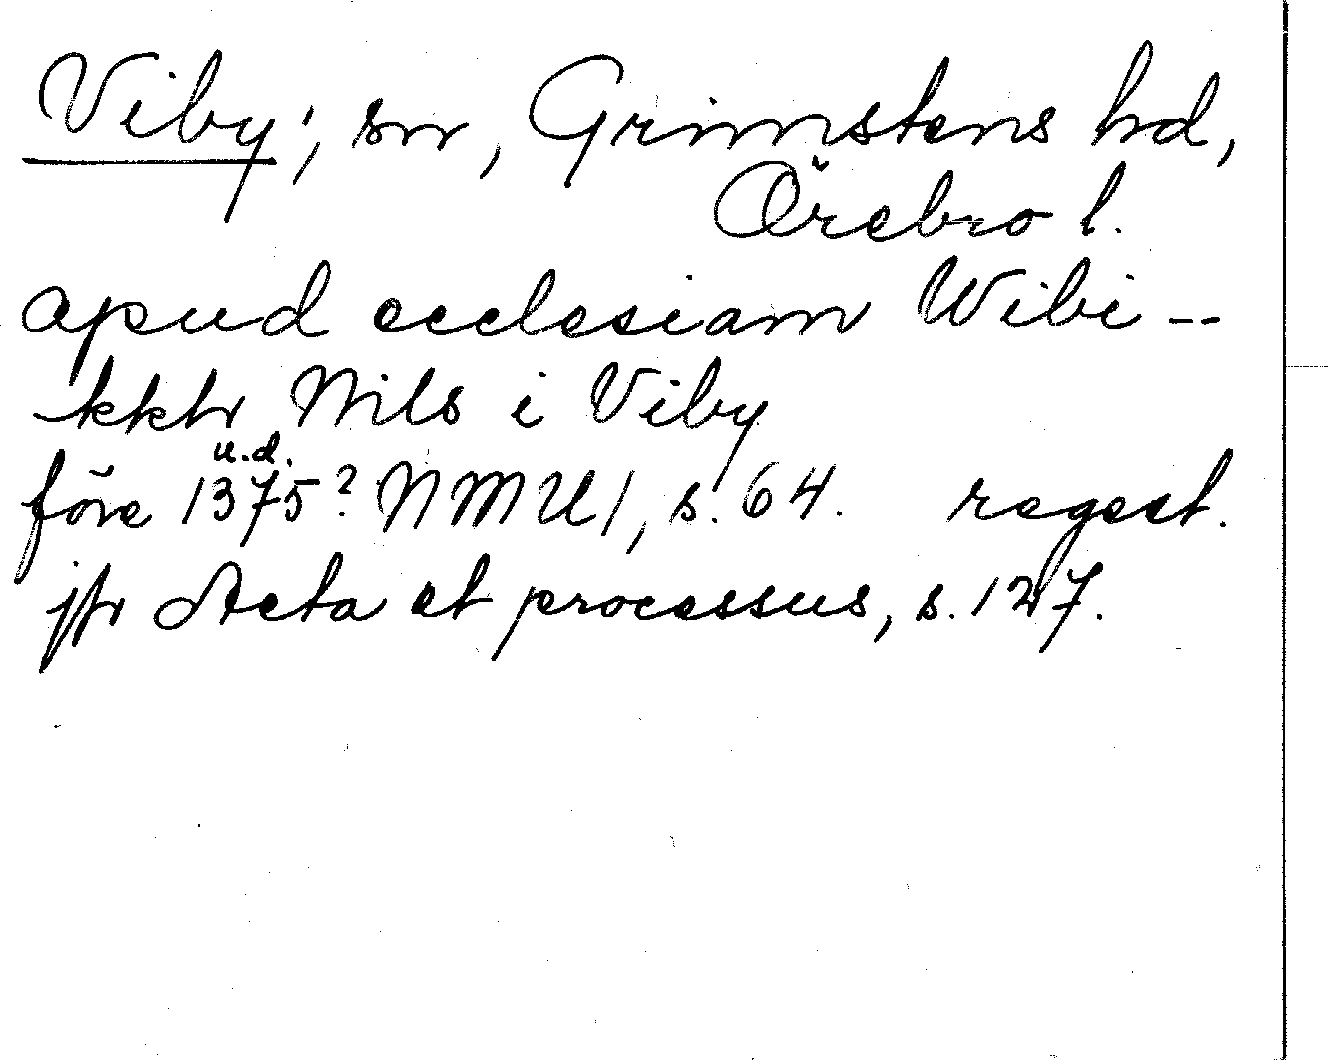 Viby; sn, Grimstens hd,
Örebro l.
apud ecclesiam Wibi --
kkhr Nils i Viby
u.d.
före 1375? NMU 1, s. 64. regest.
jfr Acta et processus, s. 127.